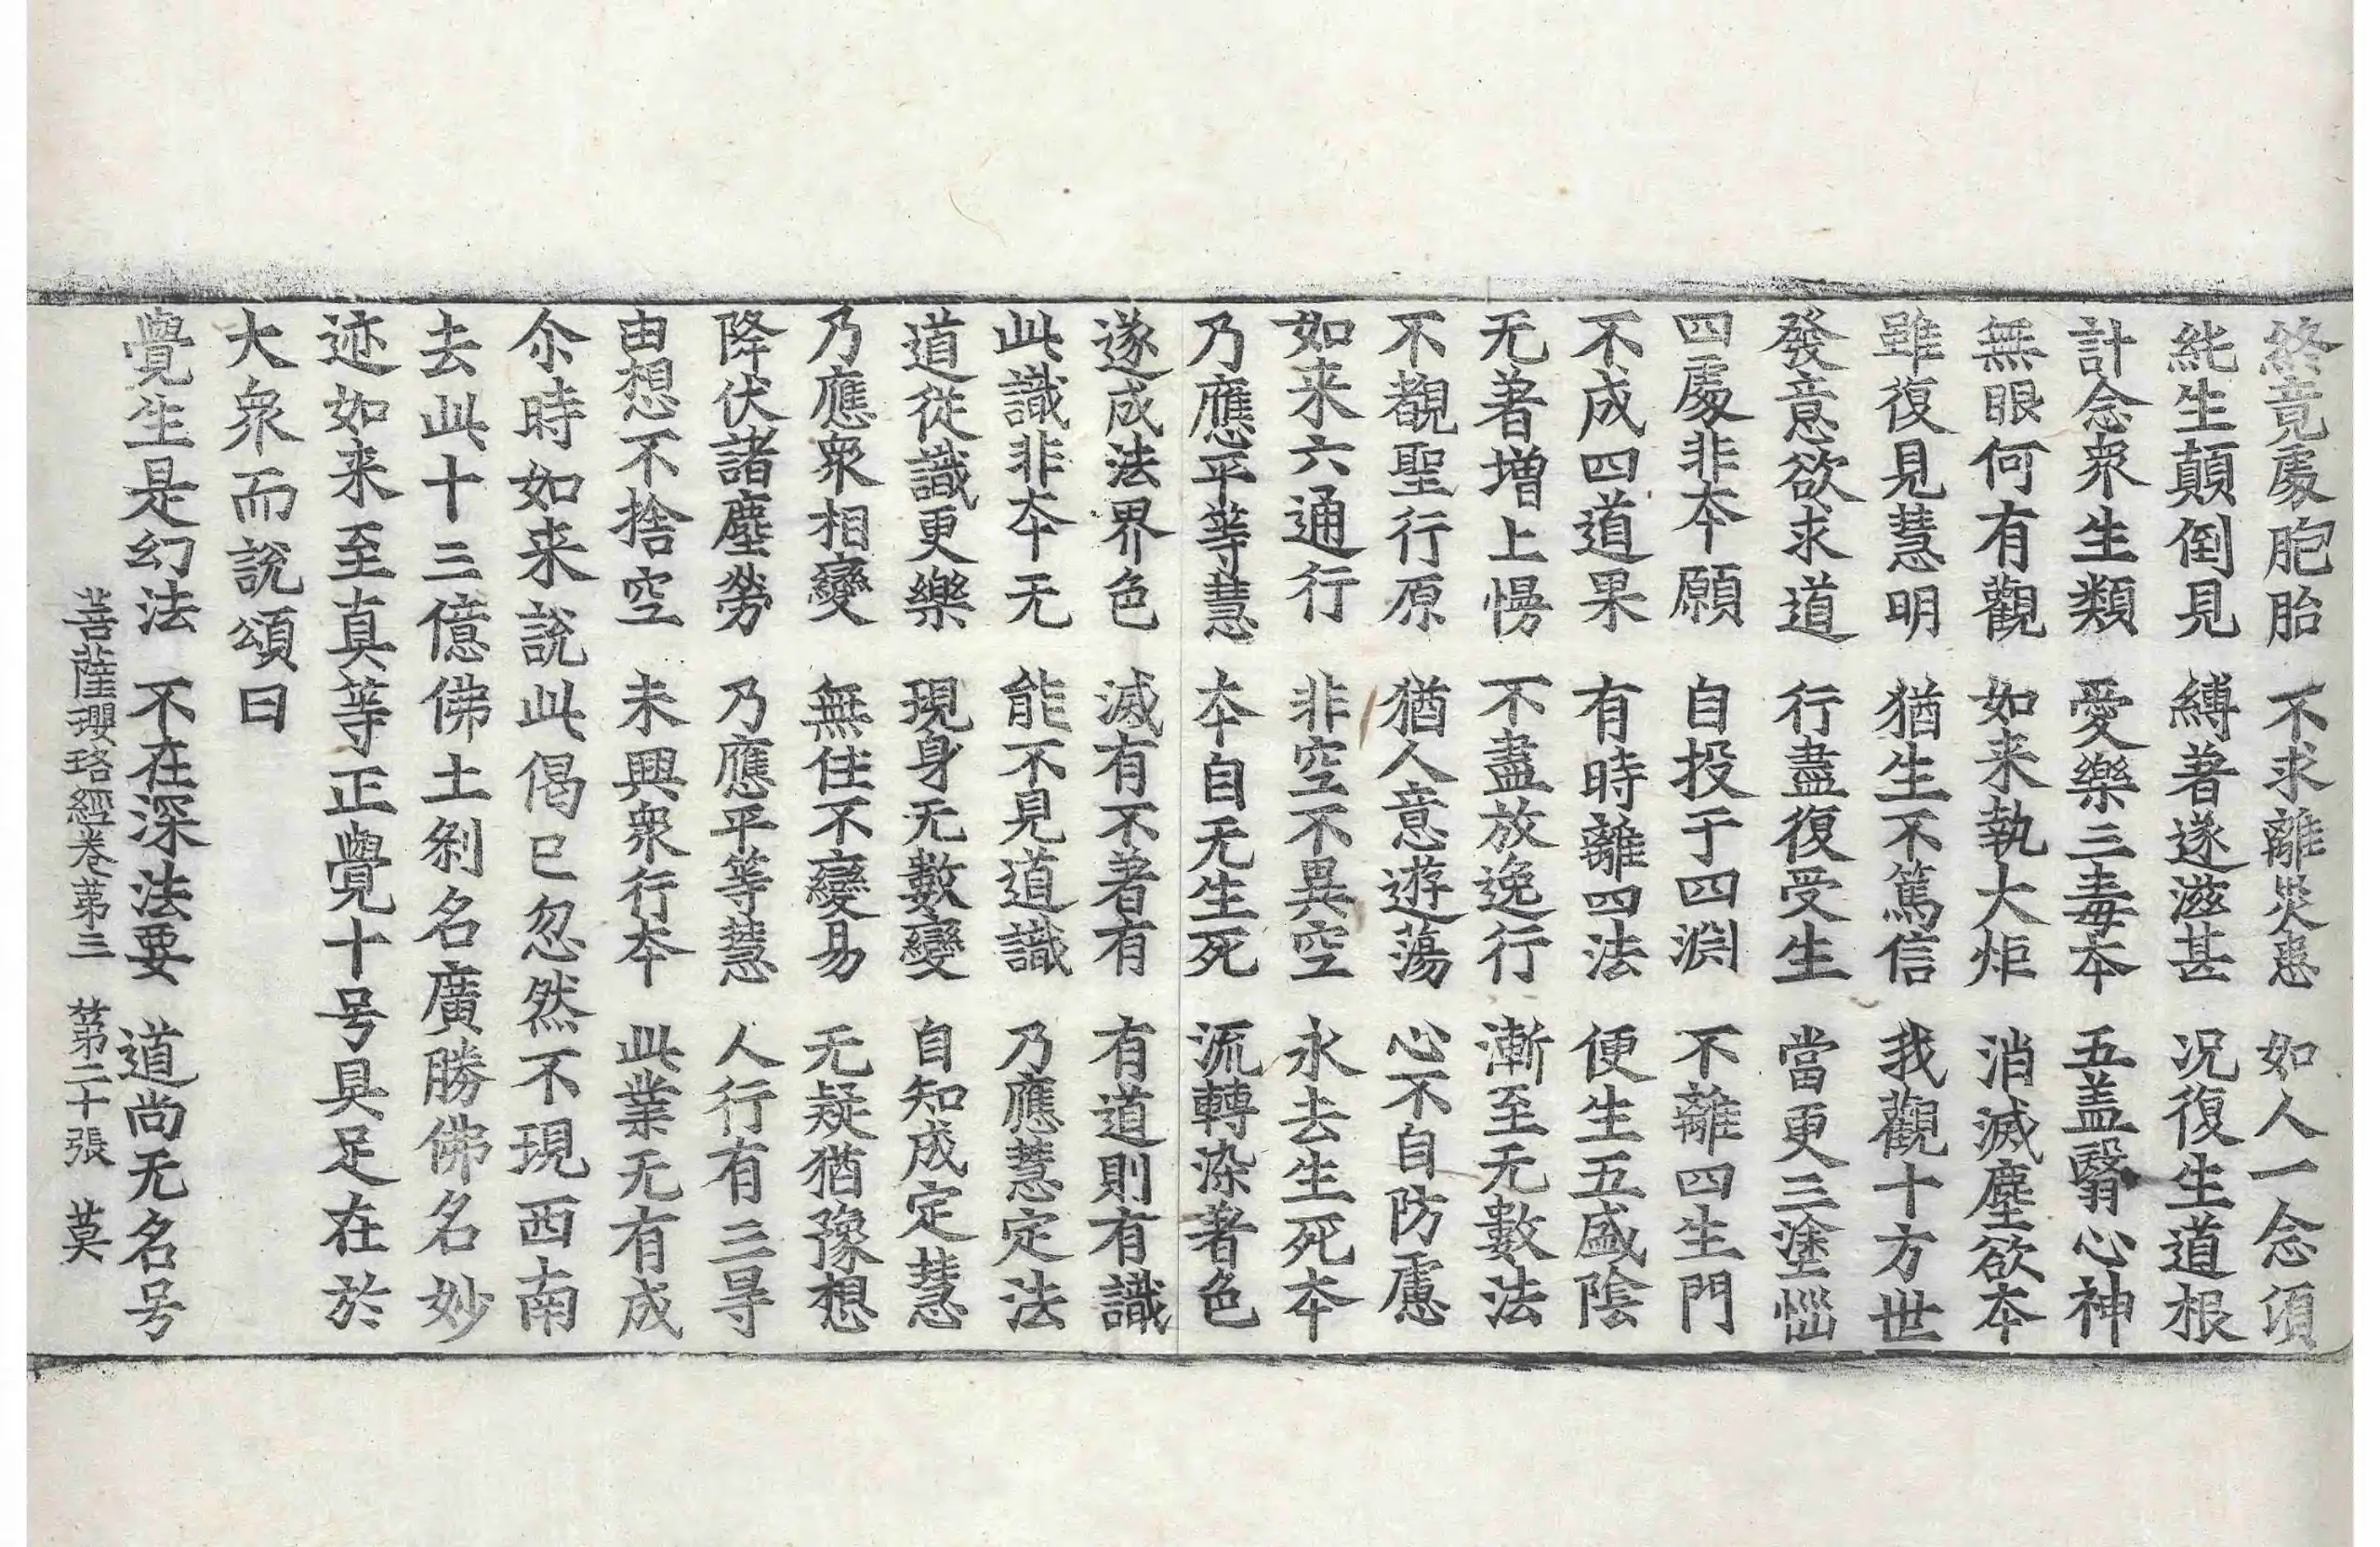 終竟處胞胎 不求離災患 如人一念須
純生顛倒見 縛著遂滋甚 况復生道根
計念衆生類 愛樂三毒本 五盖翳心神
無眼何有觀 如来執大炬 消滅塵欲本
雖復見慧明 猶生不篤信 我觀十方世
發意欲求道 行盡復受生 當更三塗惱
四處非本願 自投于四渊 不離四生門
不成四道果 有時離四法 便生五盛陰
无著增上慢 不盡放逸行 漸至无數法
不觀聖行原 猶人意遊蕩 心不自防慮
如来六通行 非空不異空 永去生死本
乃應平等慧 本自无生死 流轉染著色
遂成法界色 滅有不著有 有道則有識
此識非本无 能不見道識 乃應慧定法
道從識更樂 現身无數變 自知成定慧
乃應衆相變 無住不變易 无疑猶豫想
降伏諸塵勞 乃應平等慧 人行有三㝵
由想不捨空 未興衆行本 此業无有成
尒時如来說此偈已忽然不現西南
去此十三億佛土刹名廣勝佛名妙
迹如来至真等正覺十号具足在於
大衆而說頌曰
覺生是幻法 不在深法要 道尚无名号
菩薩瓔珞經卷第三 第二十張 莫